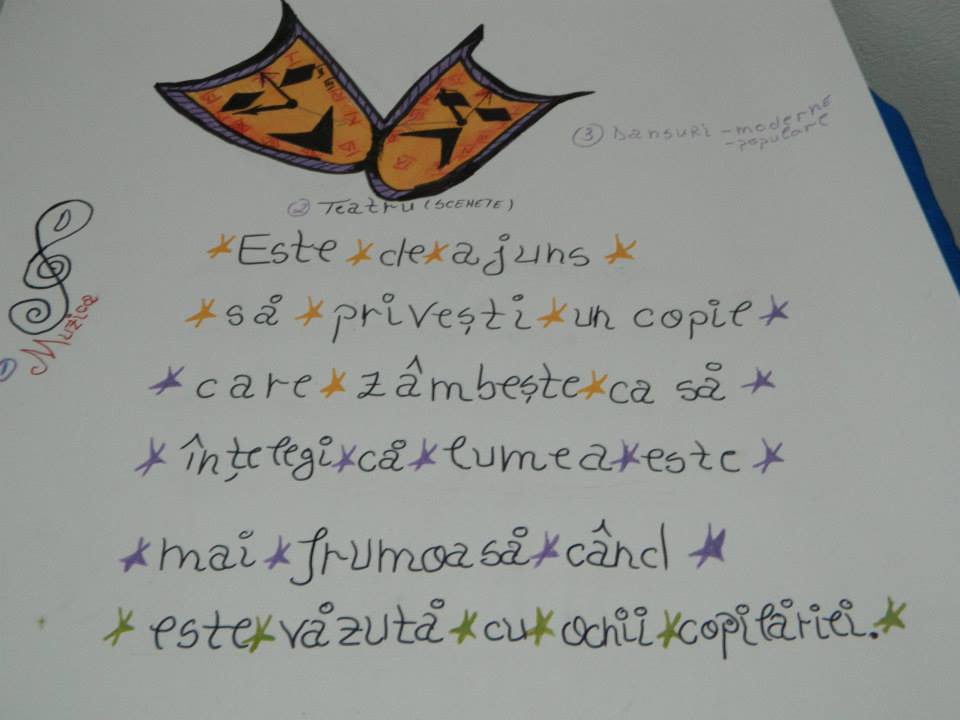 ③ Dansuri - moderne
- populare
② Teatru (SCENETE)
① Muzica
Este de ajuns
să privești un copil
care zâmbește ca să
înțelegi că lumea este
mai frumoasă când
este văzută cu ochii copilăriei.